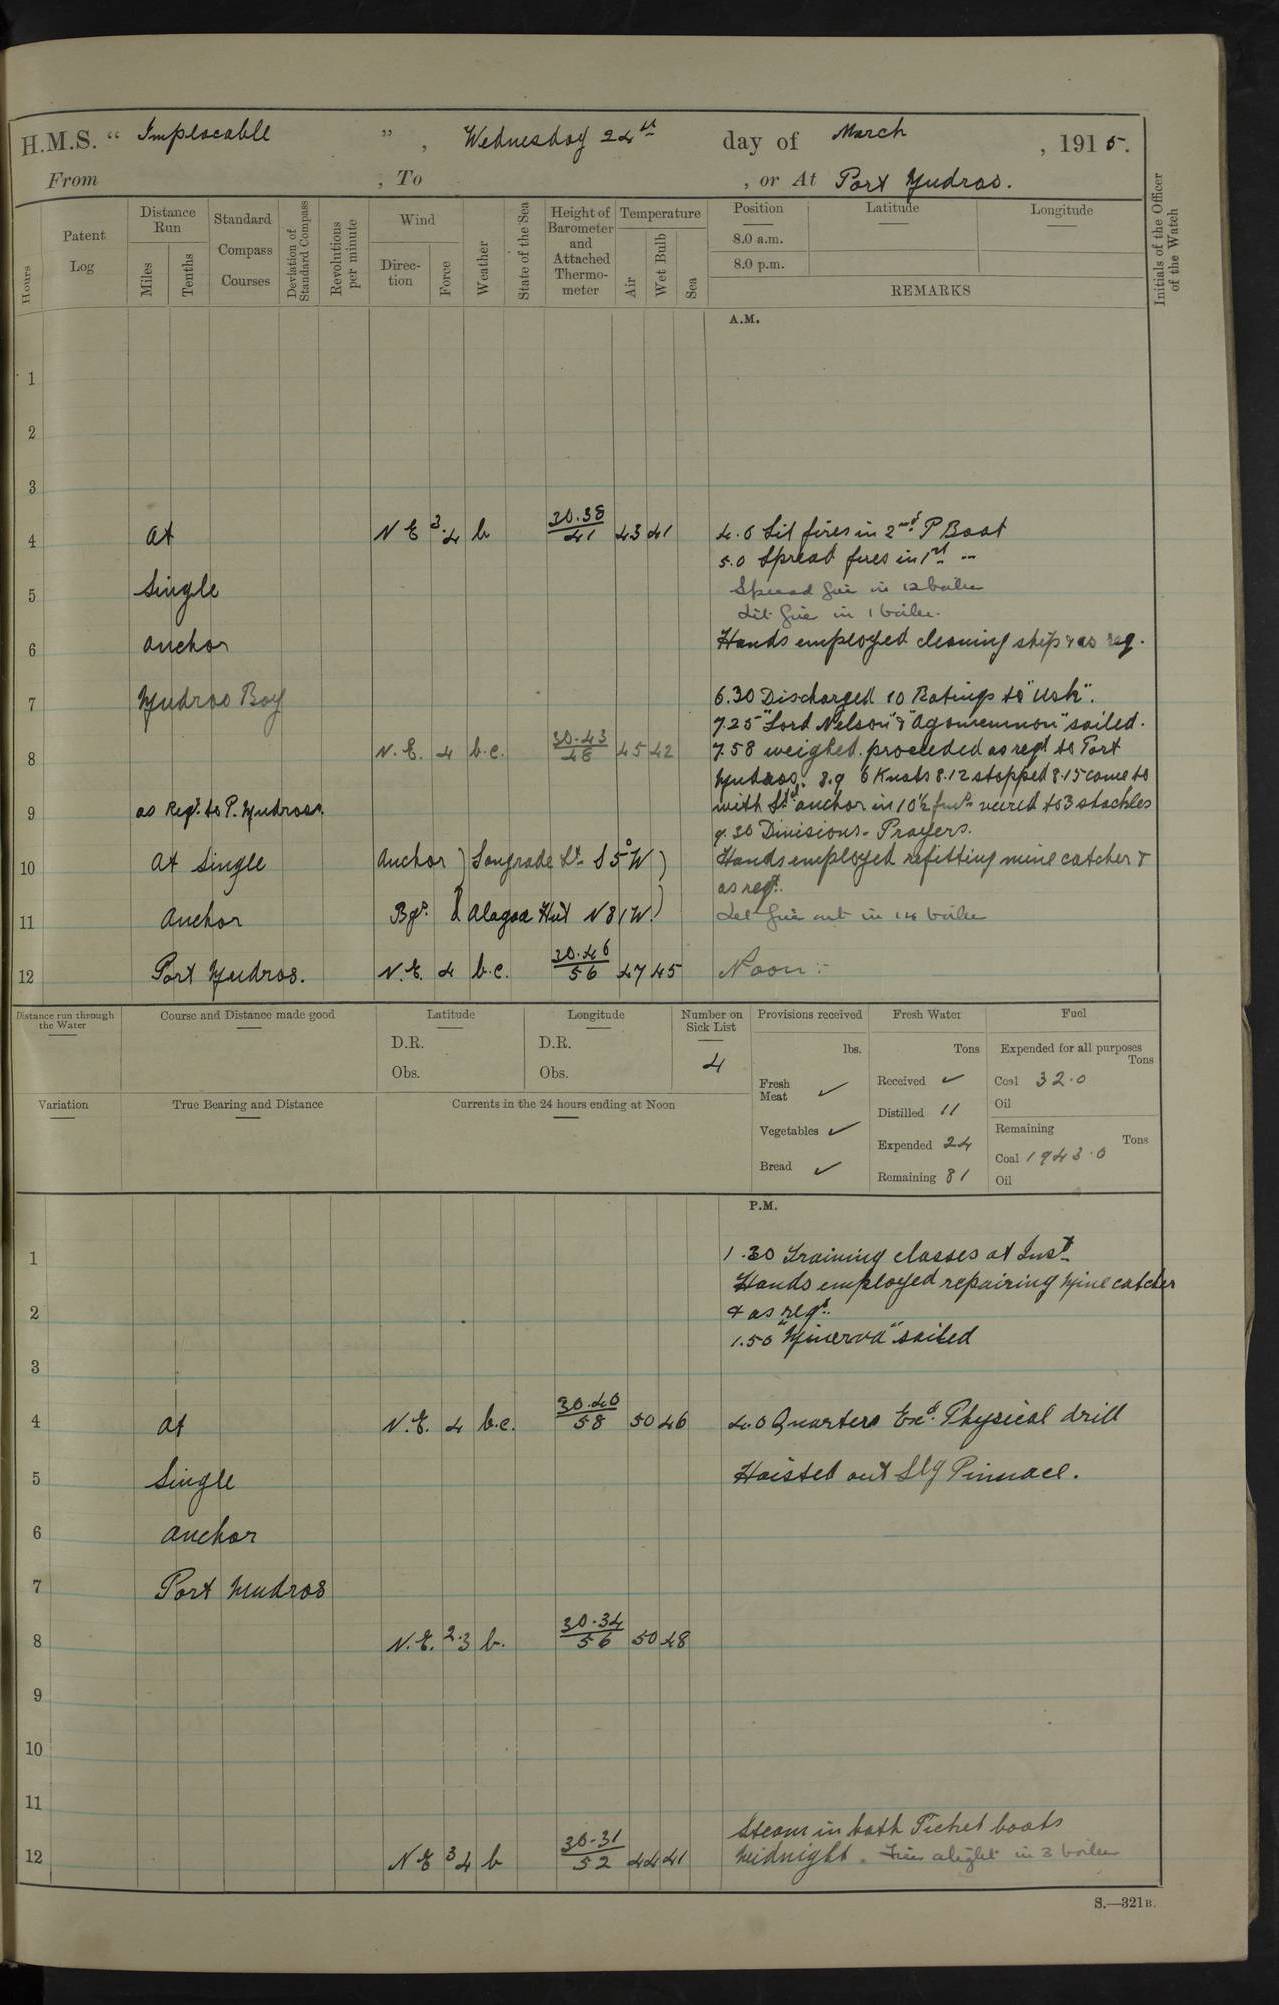 H.M.S. “ Implacable ”, Wednesday 24th day of March, 1915.
From , To , or At Port Mudros.
Hours
Patent Log
Distance Run
Miles
Tenths
Standard Compass Courses
Deviation of Standard Compass
Revolutions per minute
Wind
Direction
Force
Weather
State of the Sea
Height of Barometer and Attached Thermometer
Temperature
Air
Wet Bulb
Sea
Position
8.0 a.m.
8.0 p.m.
Latitude
Longitude
REMARKS
Initials of the Officer of the Watch
A.M.
1
2
3
4 At N E 3.4 b 30.38/41 43 41 4.0 Lit fires in 2nd P Boat
5.0 Spread fires in 1st "
5 Single Spread fire in 12 boiler
Lit fire in 1 boiler.
6 anchor Hands employed cleaning ship & as req.
7 Mudros Bay 6.30 Discharged 10 Ratings to "Usk".
7.25 "Lord Nelson" & "Agamemnon" sailed.
8 N.E. 4 b.c. 30.43/48 45 42 7.58 weighed. proceeded as reqd to Port
Mudros. 8.9 6 Knots 8.12 stopped 8.15 came to
9 as Reqd. to P. Mudros. with Std anchor in 10½ fms veered to 3 shackles
9.30 Divisions - Prayers.
10 At Single Anchor ) Lt. S 5° W ) Hands employed refitting mine catcher &
as reqd.
11 Anchor Bgs. ) Hut N 81 W. ) Let fire out in 14 boiler
12 Port Mudros. N.E. 4 b.c. 30.46/56 47 45 Noon :-
Distance run through the Water
Course and Distance made good
Latitude
D.R.
Obs.
Longitude
D.R.
Obs.
Number on Sick List
4
Provisions received
lbs.
Fresh Meat ✓
Vegetables ✓
Bread ✓
Fresh Water
Tons
Received ✓
Distilled 11
Expended 24
Remaining 81
Fuel
Expended for all purposes
Tons
Coal 32.0
Oil
Remaining
Tons
Coal 1943.0
Oil
Variation
True Bearing and Distance
Currents in the 24 hours ending at Noon
P.M.
1 1.30 Training classes at Inst.
Hands employed repairing Mine catcher
2 & as reqd.
1.50 "Minerva" sailed
3
4 At N.E. 4 b.c. 30.40/58 50 46 4.0 Quarters Exd. Physical drill
5 Single Hoisted out Slg Pinnace.
6 anchor
7 Port Mudros
8 N.E. 2.3 b. 30.34/56 50 48
9
10
11
Steam in both Picket boats
12 N E 3 4 b 30.31/52 44 41 Midnight. Fires alight in 3 boiler
S.—321B.